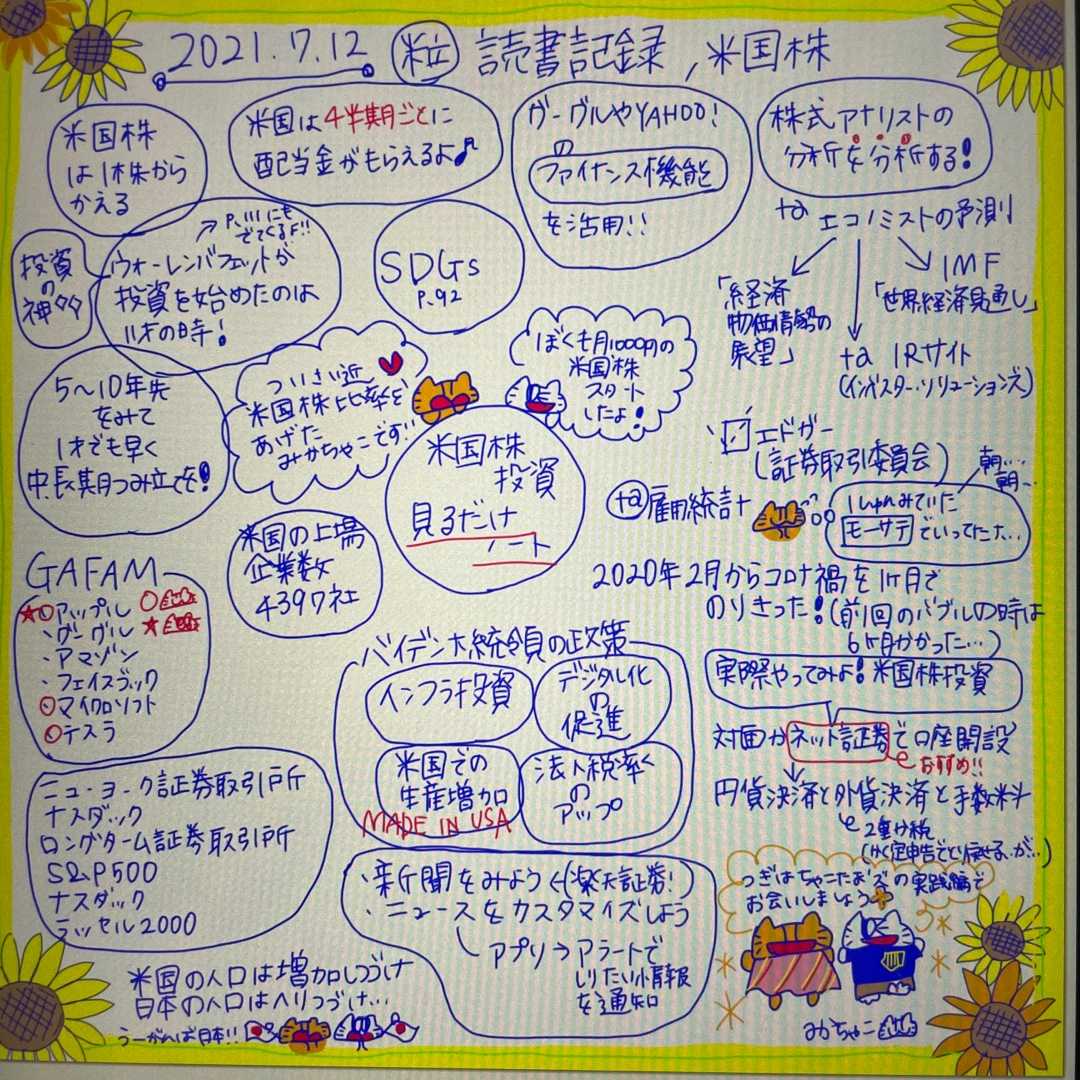 2021.7.12 粒 読書記録, 米国株
米国株
は1株から
かえる
米国は4半期ごとに
配当金がもらえるよ♪
グーグルやYAHOO!
の
ファイナンス機能
を活用!!
株式アナリストの
分析を分析する!
+α エコノミストの予測
「経済
物価情勢の
展望」
IMF
「世界経済見通し」
+α IRサイト
(インベスター・リレーションズ)
投資
の
神々
P.111にも
でてくるよ!!
ウォーレンバフェットが
投資を始めたのは
11才の時!
SDGs
P.92
5〜10年先
をみて
1才でも早く
中.長期つみ立てを!
ついさい近
米国株比率を
あげた
みかちゃこです!!
ぼくも月1000円の
米国株
スタート
したよ!
米国株
投資
見るだけ
ノート
エドガー
(証券取引委員会)
+α 雇用統計
朝…
朝…
モーサテでいってたナ…
米国の上場
企業数
4397社
2020年2月からコロナ禍を1ヶ月で
のりきった!(前回のバブルの時は
6ヶ月かかった…)
GAFAM
★○アップル ○
・グーグル ★
・アマゾン
・フェイスブック
○マイクロソフト
○テスラ
バイデン大統領の政策
インフラ投資
デジタル化
の
促進
米国での
生産増加
MADE IN USA
法人税率
の
アップ
実際やってみよ!米国株投資
対面かネット証券で口座開設
おすすめ!!
円貨決済と外貨決済と手数料
2重か税
(かく定申告でとり戻せる、が…)
ニューヨーク証券取引所
ナスダック
ロングターム証券取引所
S&P500
ナスダック
ラッセル2000
・新聞をみよう←(楽天証券!)
・ニュースをカスタマイズしよう
アプリ→アラートで
しりたい情報
を通知
つぎはちゃこたお'ズの実践編で
お会いしましょう
米国の人口は増加しつづけ
日本の人口はへりつづけ…
うーがんば日本!!
みかちゃこ